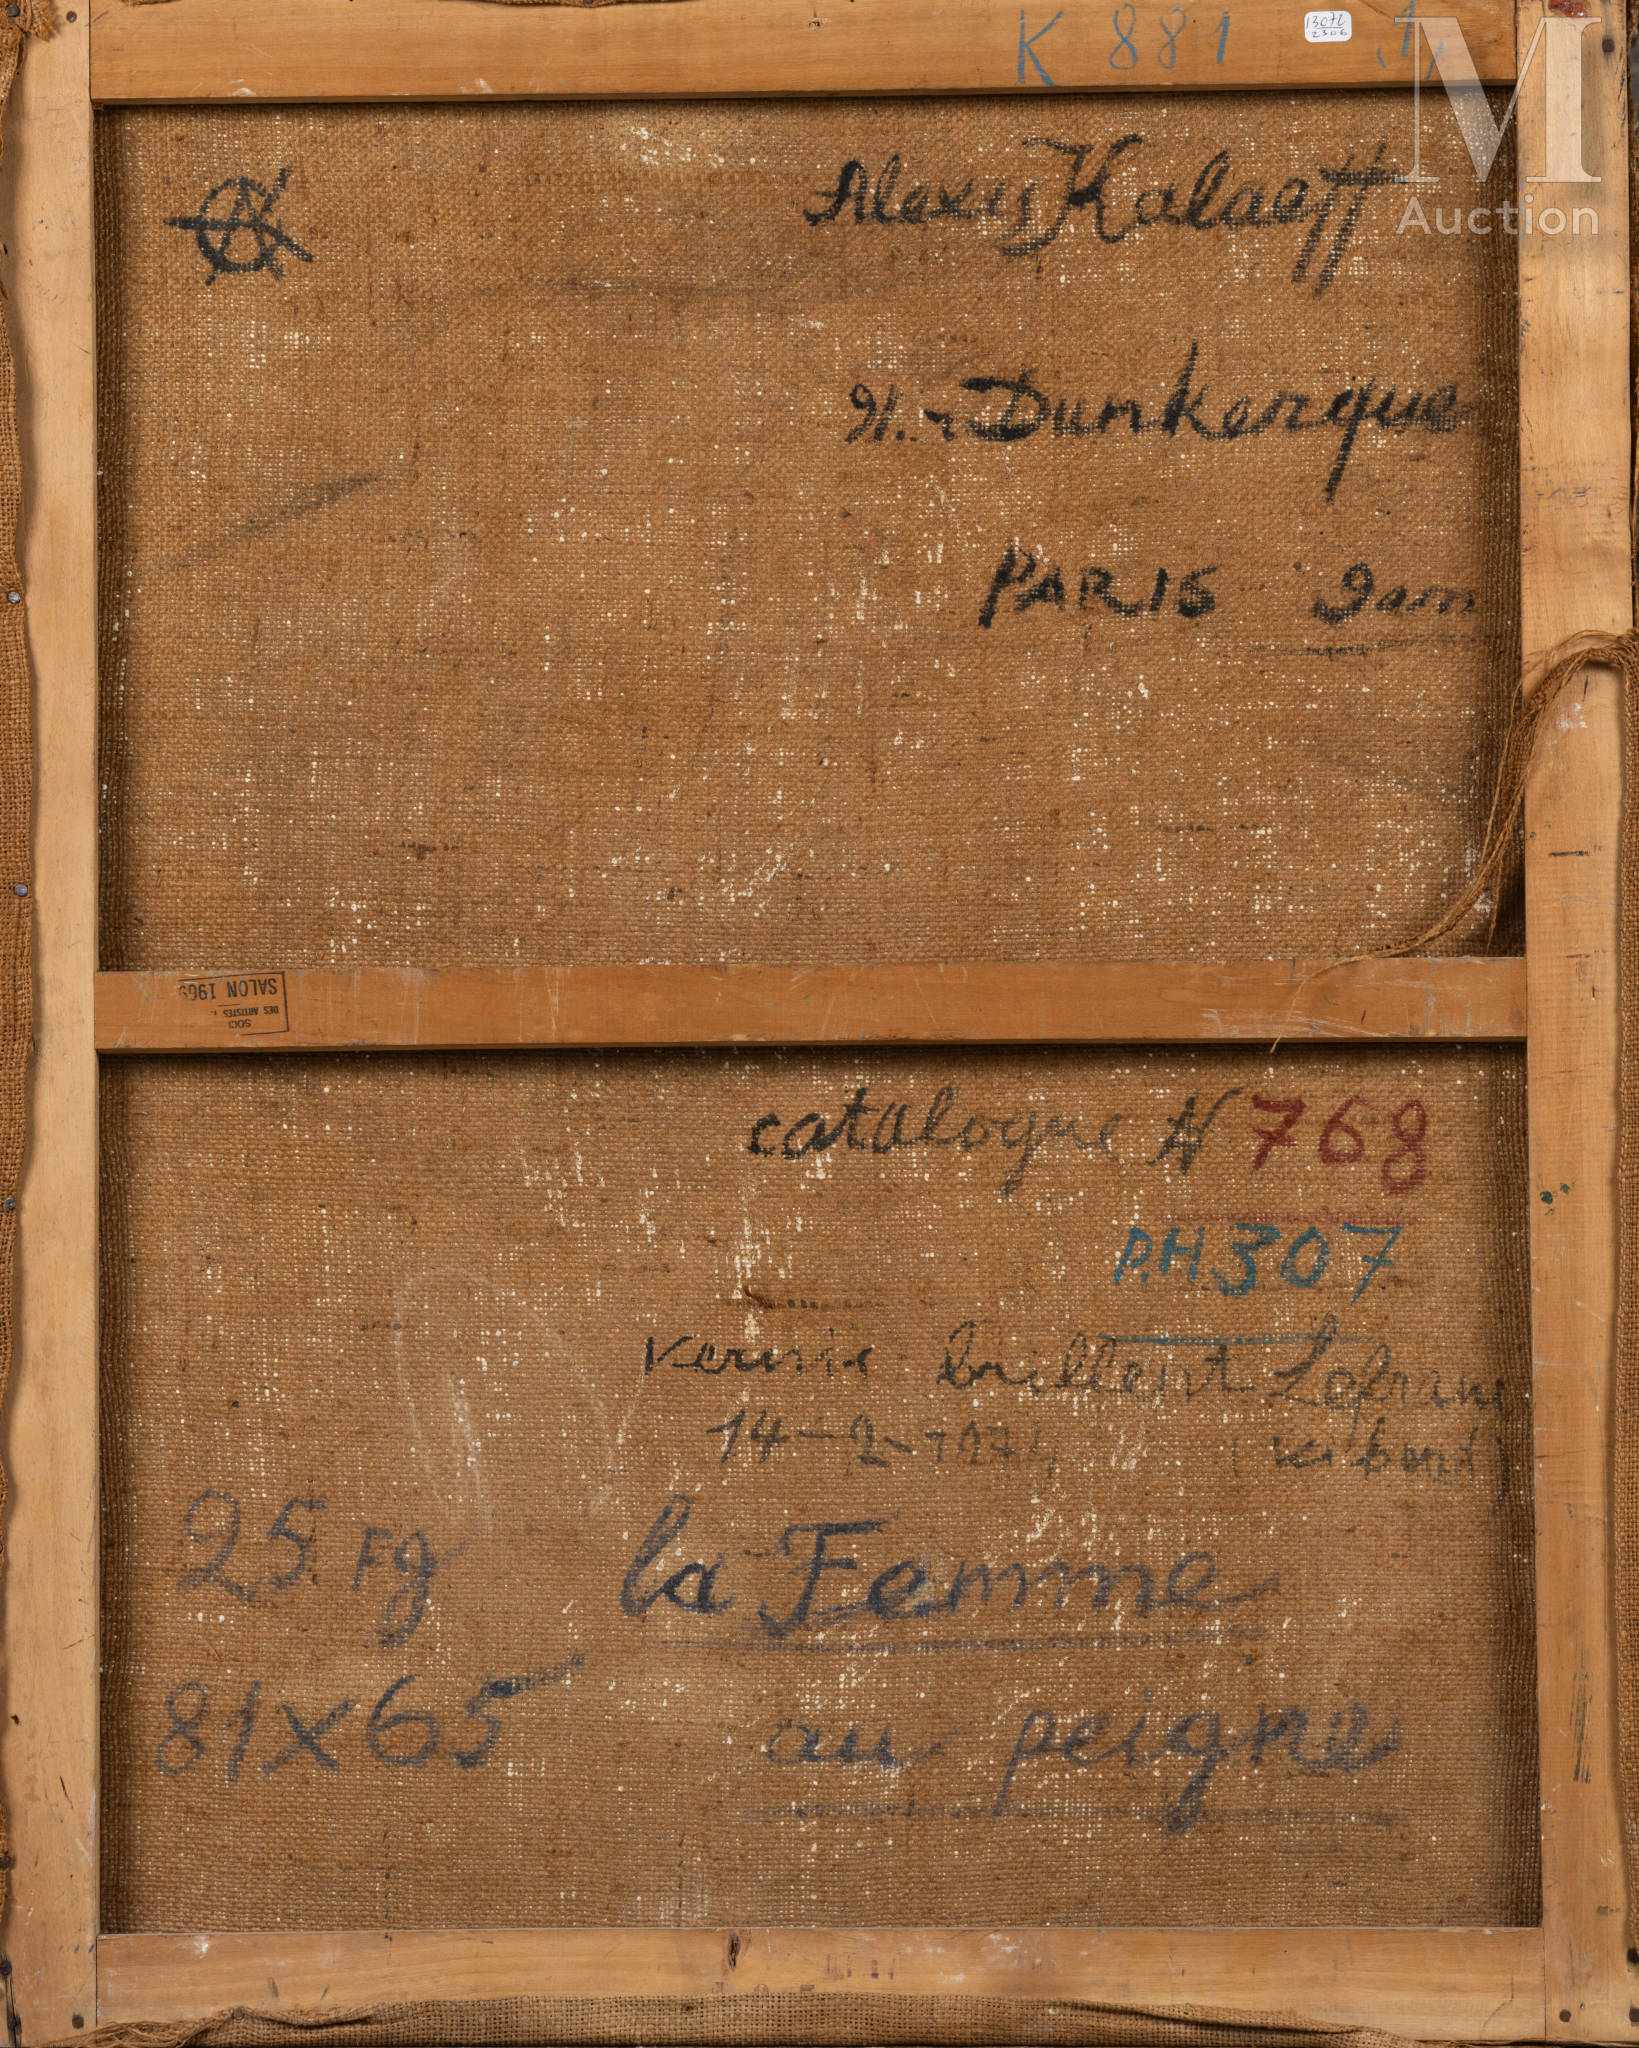 K 881 1
13072
2306
M
Auction
AK
Alexis Kalaeff
91. r Dunkerque
PARIS 9em
SALON 1969
DES ARTISTES
SOCI
catalogue N 768
P.H 307
vernis brillent Lefranc
14-2-1974
25 Fg
la Femme
81x65
au peigne